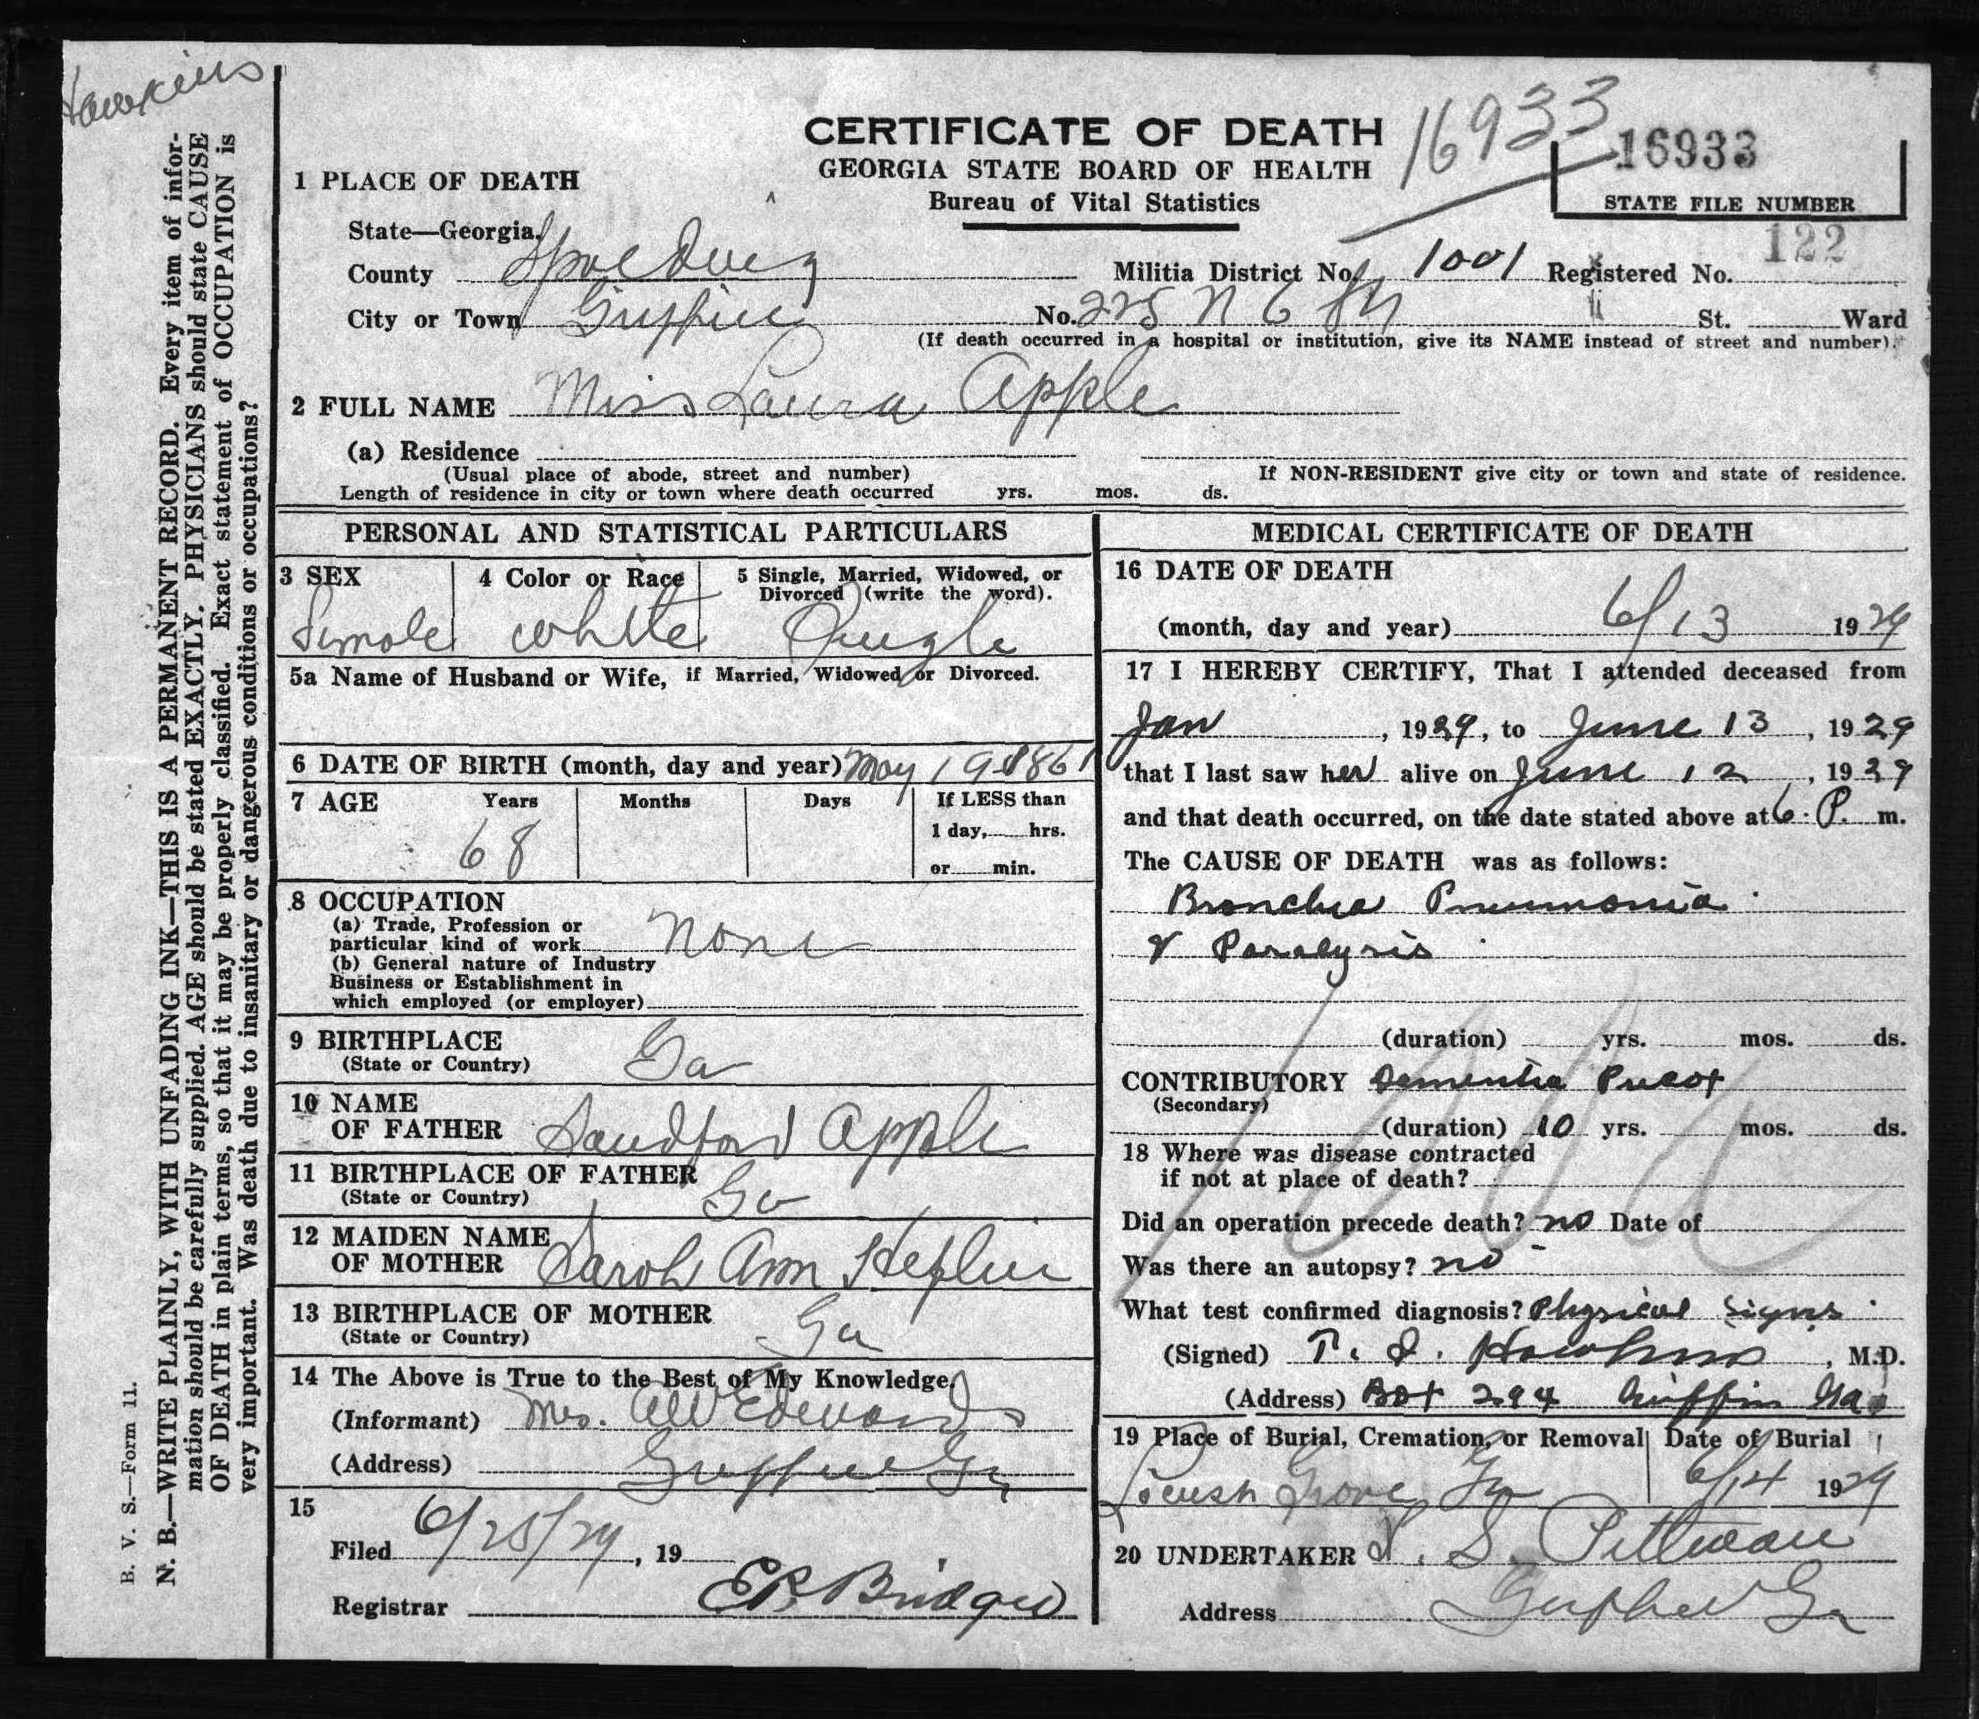 Hawkins
CERTIFICATE OF DEATH
GEORGIA STATE BOARD OF HEALTH
Bureau of Vital Statistics
16933
16933
STATE FILE NUMBER
1 PLACE OF DEATH
State—Georgia.
County Spalding Militia District No. 1001 Registered No. 122
City or Town Griffin No. 225 N 6 St. Ward
(If death occurred in a hospital or institution, give its NAME instead of street and number).
2 FULL NAME Miss Laura Apple
(a) Residence
(Usual place of abode, street and number) If NON-RESIDENT give city or town and state of residence.
Length of residence in city or town where death occurred yrs. mos. ds.
PERSONAL AND STATISTICAL PARTICULARS
3 SEX 4 Color or Race 5 Single, Married, Widowed, or
Divorced (write the word).
Female White Single
5a Name of Husband or Wife, if Married, Widowed or Divorced.
6 DATE OF BIRTH (month, day and year) May 19 1861
7 AGE Years Months Days If LESS than
1 day, hrs.
68
or min.
8 OCCUPATION
(a) Trade, Profession or
particular kind of work None
(b) General nature of Industry
Business or Establishment in
which employed (or employer)
9 BIRTHPLACE
(State or Country) Ga
10 NAME
OF FATHER Sandford Apple
11 BIRTHPLACE OF FATHER
(State or Country) Ga
12 MAIDEN NAME
OF MOTHER Sarah Ann Heflin
13 BIRTHPLACE OF MOTHER
(State or Country) Ga
14 The Above is True to the Best of My Knowledge.
(Informant) Mrs. AW Edwards
(Address) Griffin Ga
15
Filed 6/25/29, 19
Registrar E.P. Bridges
MEDICAL CERTIFICATE OF DEATH
16 DATE OF DEATH
(month, day and year) 6/13 1929
17 I HEREBY CERTIFY, That I attended deceased from
Jan, 1929, to June 13, 1929
that I last saw her alive on June 12, 1929
and that death occurred, on the date stated above at 6. P. m.
The CAUSE OF DEATH was as follows:
Bronchia Pneumonia
& Paralysis
(duration) yrs. mos. ds.
CONTRIBUTORY Dementia Precox
(Secondary)
(duration) 10 yrs. mos. ds.
18 Where was disease contracted
if not at place of death?
Did an operation precede death? no Date of
Was there an autopsy? no
What test confirmed diagnosis? Physical Signs
(Signed) T. I. Hawkins, M.D.
(Address) Box 294 Griffin Ga.
19 Place of Burial, Cremation, or Removal Date of Burial
Locust Grove Ga 6/14 1929
20 UNDERTAKER S. Pittman
Address Griffin Ga
B. V. S.—Form 11.
N. B.—WRITE PLAINLY, WITH UNFADING INK—THIS IS A PERMANENT RECORD. Every item of infor-
mation should be carefully supplied. AGE should be stated EXACTLY. PHYSICIANS should state CAUSE
OF DEATH in plain terms, so that it may be properly classified. Exact statement of OCCUPATION is
very important. Was death due to insanitary or dangerous conditions or occupations?